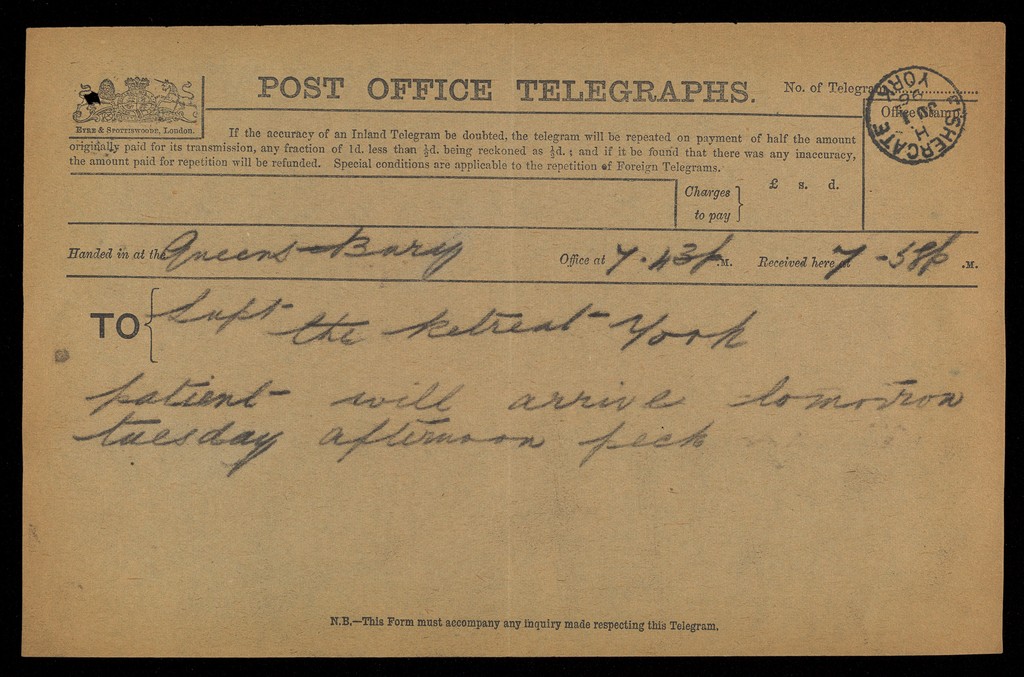 POST OFFICE TELEGRAPHS.
No. of Telegram
Office Stamp.
FISHERGATE
YORK
EYRE & SPOTTISWOODE, LONDON.
If the accuracy of an Inland Telegram be doubted, the telegram will be repeated on payment of half the amount
originally paid for its transmission, any fraction of 1d. less than ½d. being reckoned as ½d.; and if it be found that there was any inaccuracy,
the amount paid for repetition will be refunded. Special conditions are applicable to the repetition of Foreign Telegrams.
Charges
to pay
£ s. d.
Handed in at the Queens Bury Office at 7.43p .M. Received here at 7-58p .M.
TO Supt the Retreat York
patient will arrive tomorrow
tuesday afternoon peck
N.B.—This Form must accompany any inquiry made respecting this Telegram.